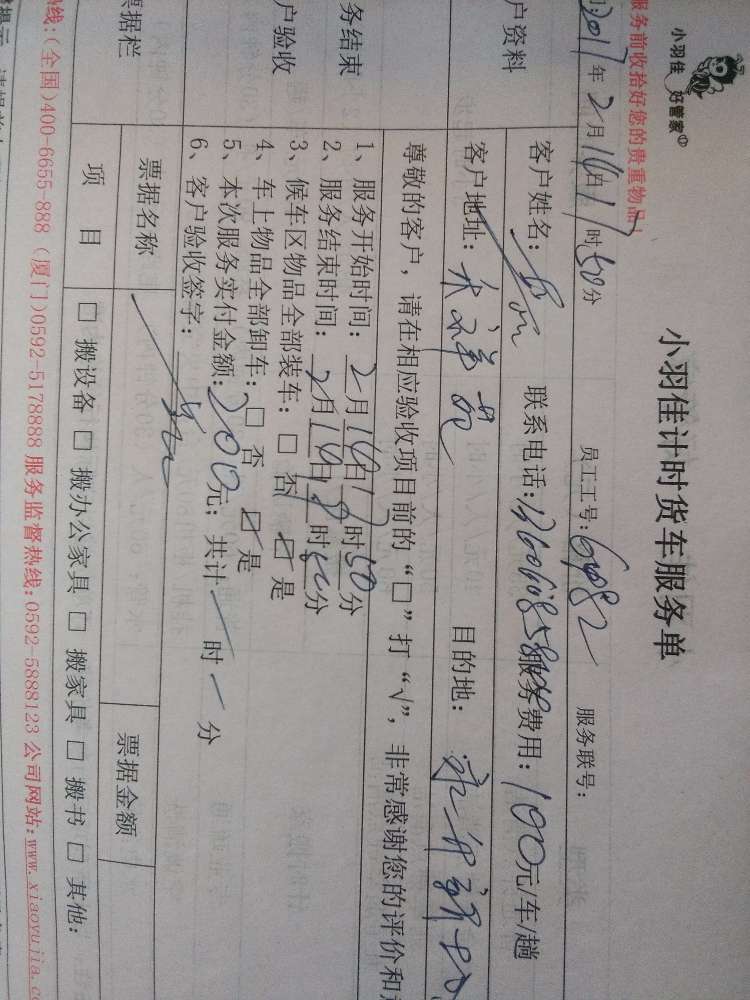 小羽佳 好管家
小羽佳计时货车服务单
服务前收拾好您的贵重物品!
2017年2月16日17时50分 员工工号: 6982 服务联号:
户资料
客户姓名: 联系电话: 服务费用: 100元/车/趟
客户地址: 目的地:
务结束
户验收
尊敬的客户，请在相应验收项目前的“□”打“√”，非常感谢您的评价和
1、服务开始时间: 2月16日17时50分
2、服务结束时间: 2月16日 时 分
3、候车区物品全部装车: □ 否 ☑ 是
4、车上物品全部卸车: □ 否 ☑ 是
5、本次服务实付金额: 200元; 共计 时 分
6、客户验收签字:
票据栏
票据名称 票据金额
项 目 □ 搬设备 □ 搬办公家具 □ 搬家具 □ 搬书 □ 其他:
热线:(全国)400-6655-888 (厦门)0592-5178888 服务监督热线:0592-5888123 公司网站:www.xiaoyujia.c